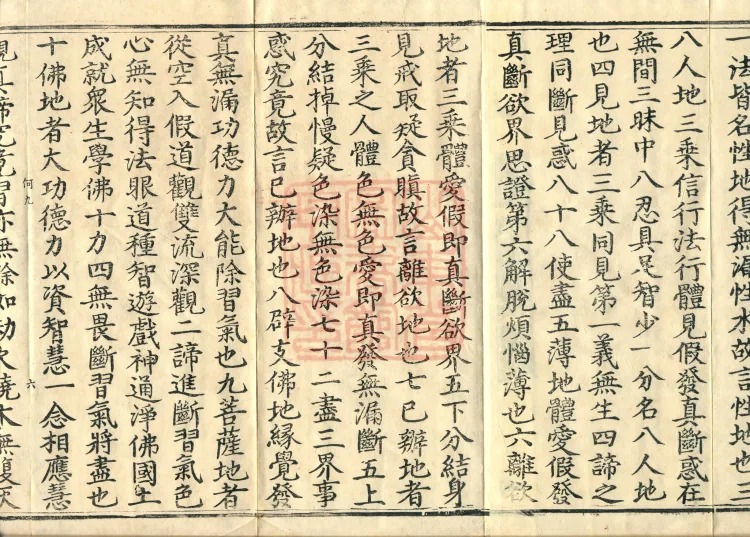 一法皆名性地得無漏性水故言性地也三
八人地三乘信行法行體見假發真斷惑在
無間三昧中八忍具足智少一分名八人地
也四見地者三乘同見第一義無生四諦之
理同斷見惑八十八使盡五薄地體愛假發
真斷欲界思證第六解脫煩惱薄也六離欲
地者三乘體愛假即真斷欲界五下分結身
見戒取疑貪瞋故言離欲地也七已辦地者
三乘之人體色無色愛即真發無漏斷五上
分結掉慢疑色染無色染七十二盡三界事
惑究竟故言已辦地也八辟支佛地緣覺發
真無漏功德力大能除習氣也九菩薩地者
從空入假道觀雙流深觀二諦進斷習氣色
心無知得法眼道種智遊戲神通淨佛國土
成就衆生學佛十力四無畏斷習氣將盡也
十佛地者大功德力以資智慧一念相應慧
何九
六
觀真諦究竟習亦無餘如劫火燒木無復灰